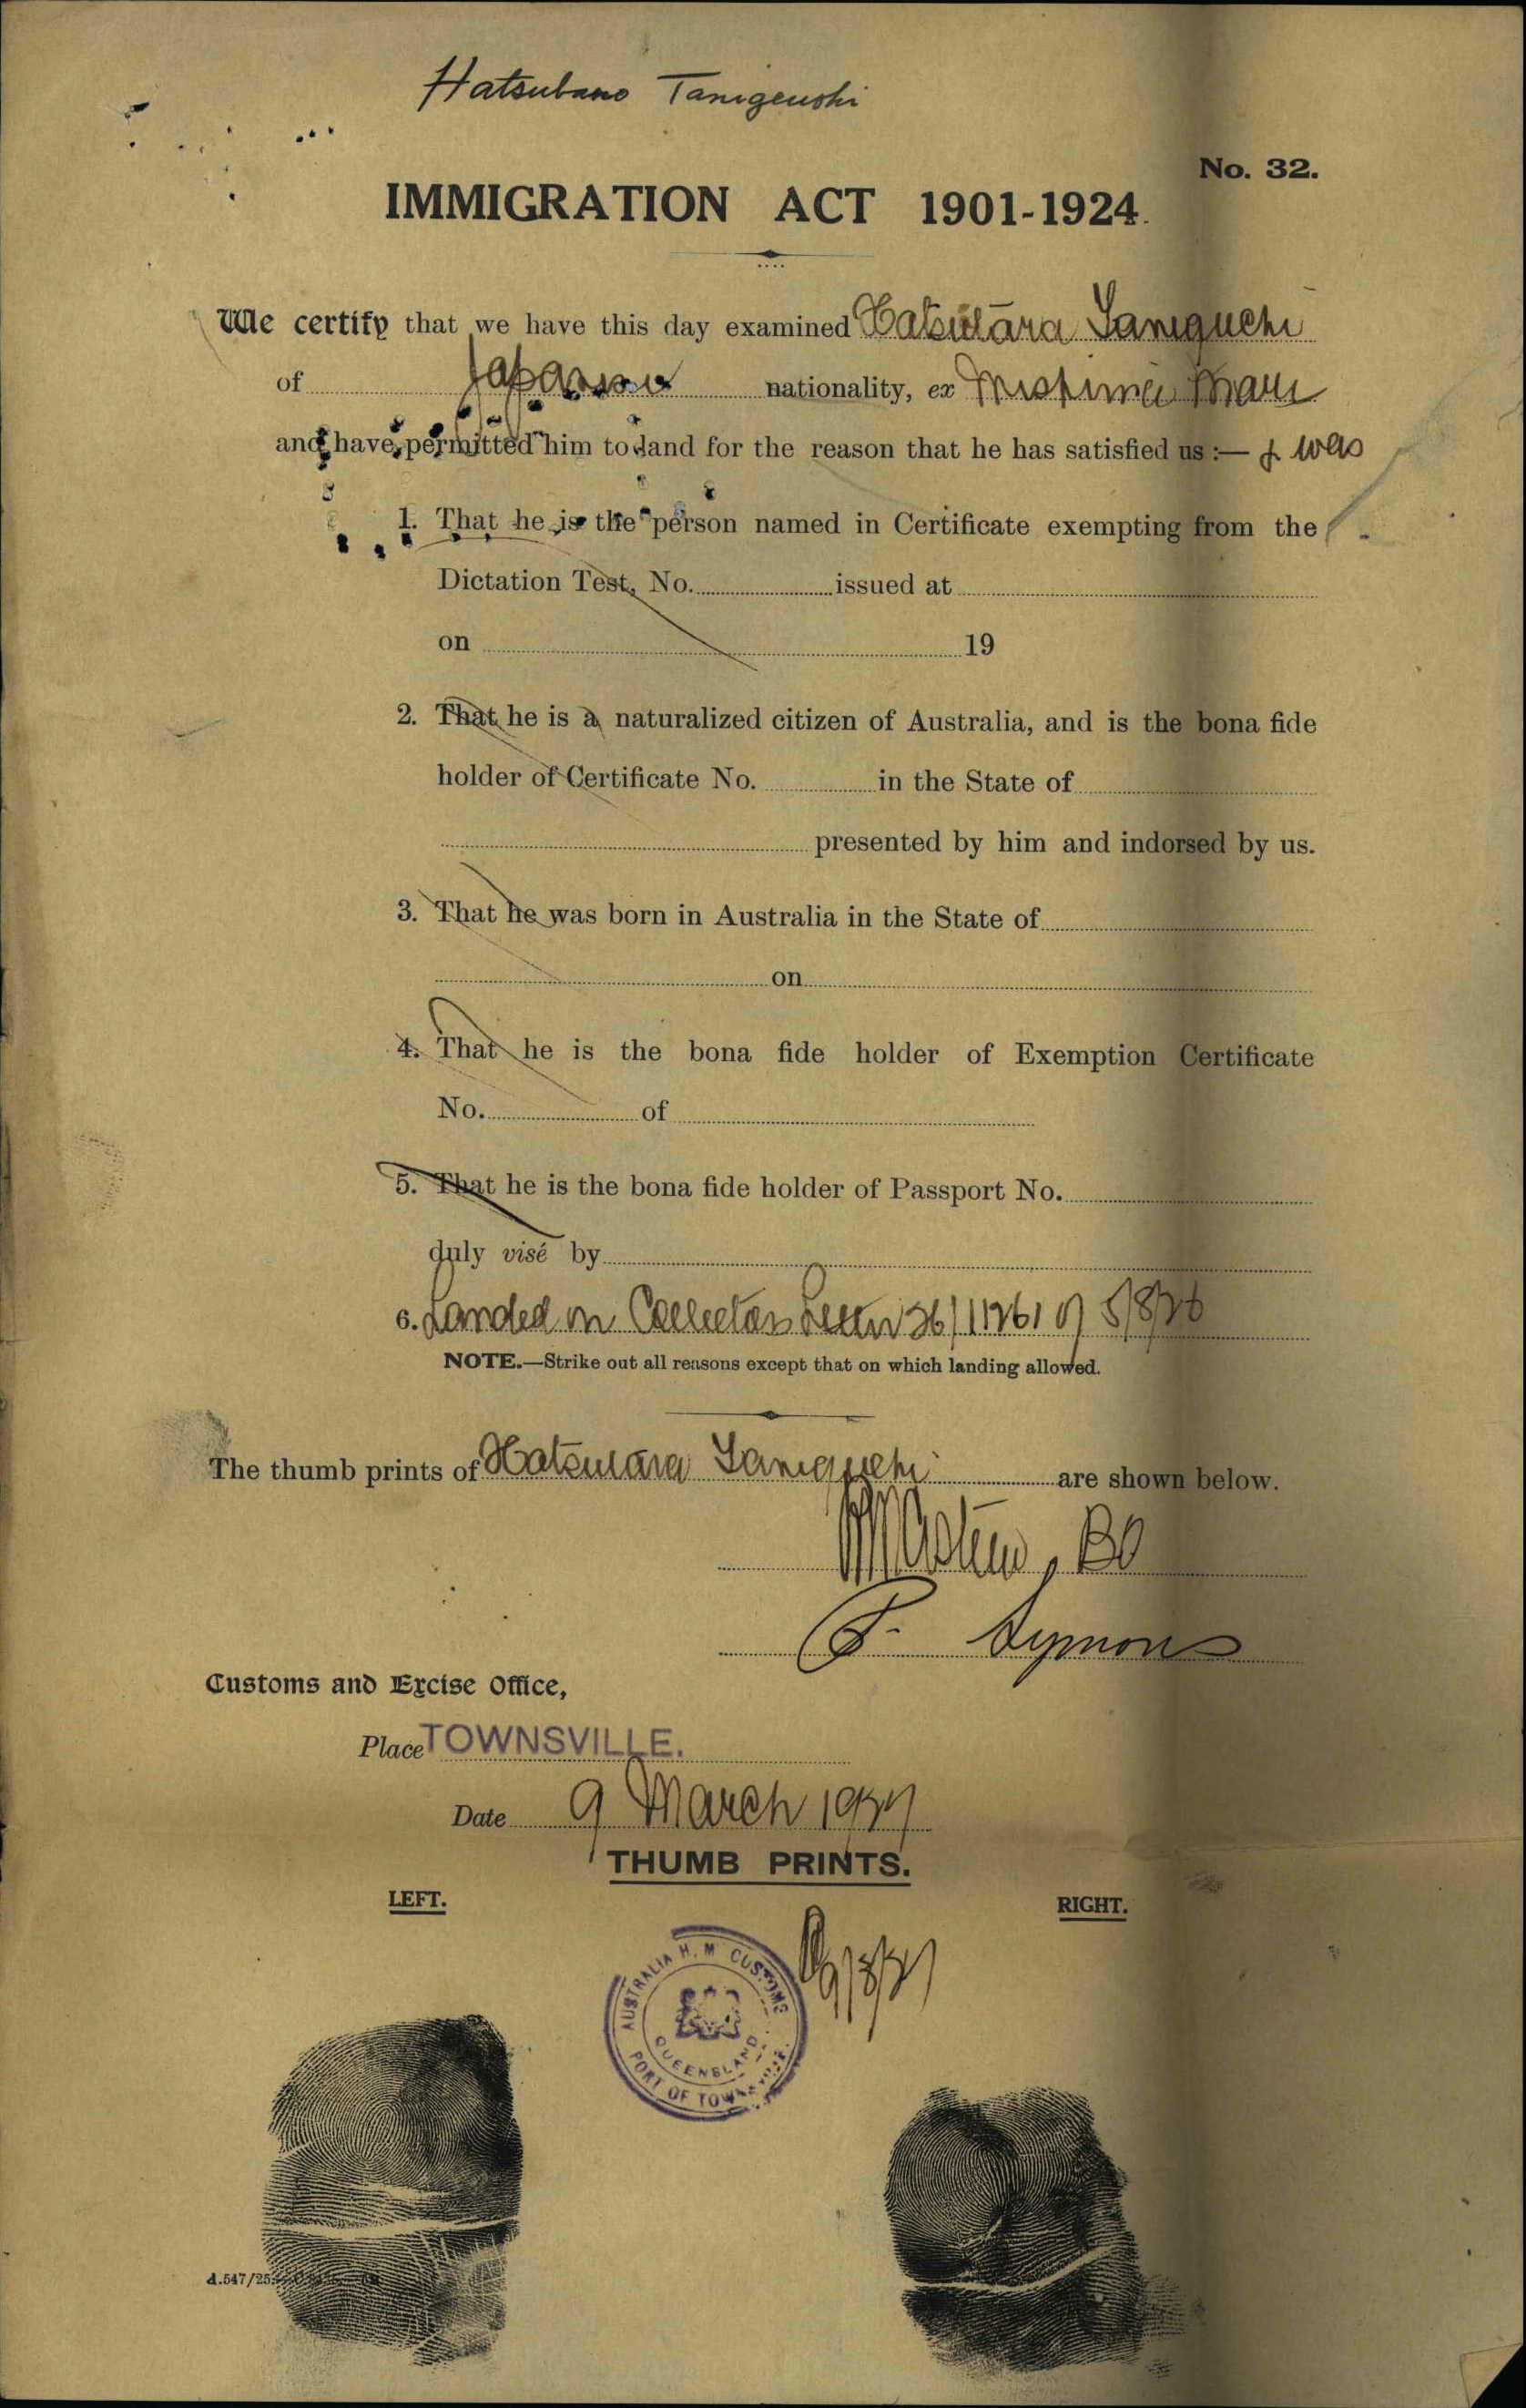 Hatsubano Tanigeushi
No. 32.
IMMIGRATION ACT 1901-1924.
We certify that we have this day examined Hatsutāra Taniguchi
of Japanese nationality, ex Mishima Maru
and have permitted him to land for the reason that he has satisfied us :— & was
1. That he is the person named in Certificate exempting from the
Dictation Test, No. issued at
on 19
2. That he is a naturalized citizen of Australia, and is the bona fide
holder of Certificate No. in the State of
presented by him and indorsed by us.
3. That he was born in Australia in the State of
on
4. That he is the bona fide holder of Exemption Certificate
No. of
5. That he is the bona fide holder of Passport No.
duly visé by
6. Landed on Collectors Letter 26/11261 of 5/8/26
NOTE.—Strike out all reasons except that on which landing allowed.
The thumb prints of Hatsutara Taniguchi are shown below.
BO
F. Symons
Customs and Excise Office,
Place TOWNSVILLE.
Date 9 March 1927
THUMB PRINTS.
LEFT. RIGHT.
9/3/27
AUSTRALIA H. M CUSTOMS
QUEENSLAND
PORT OF TOWNSVILLE
A.547/25.